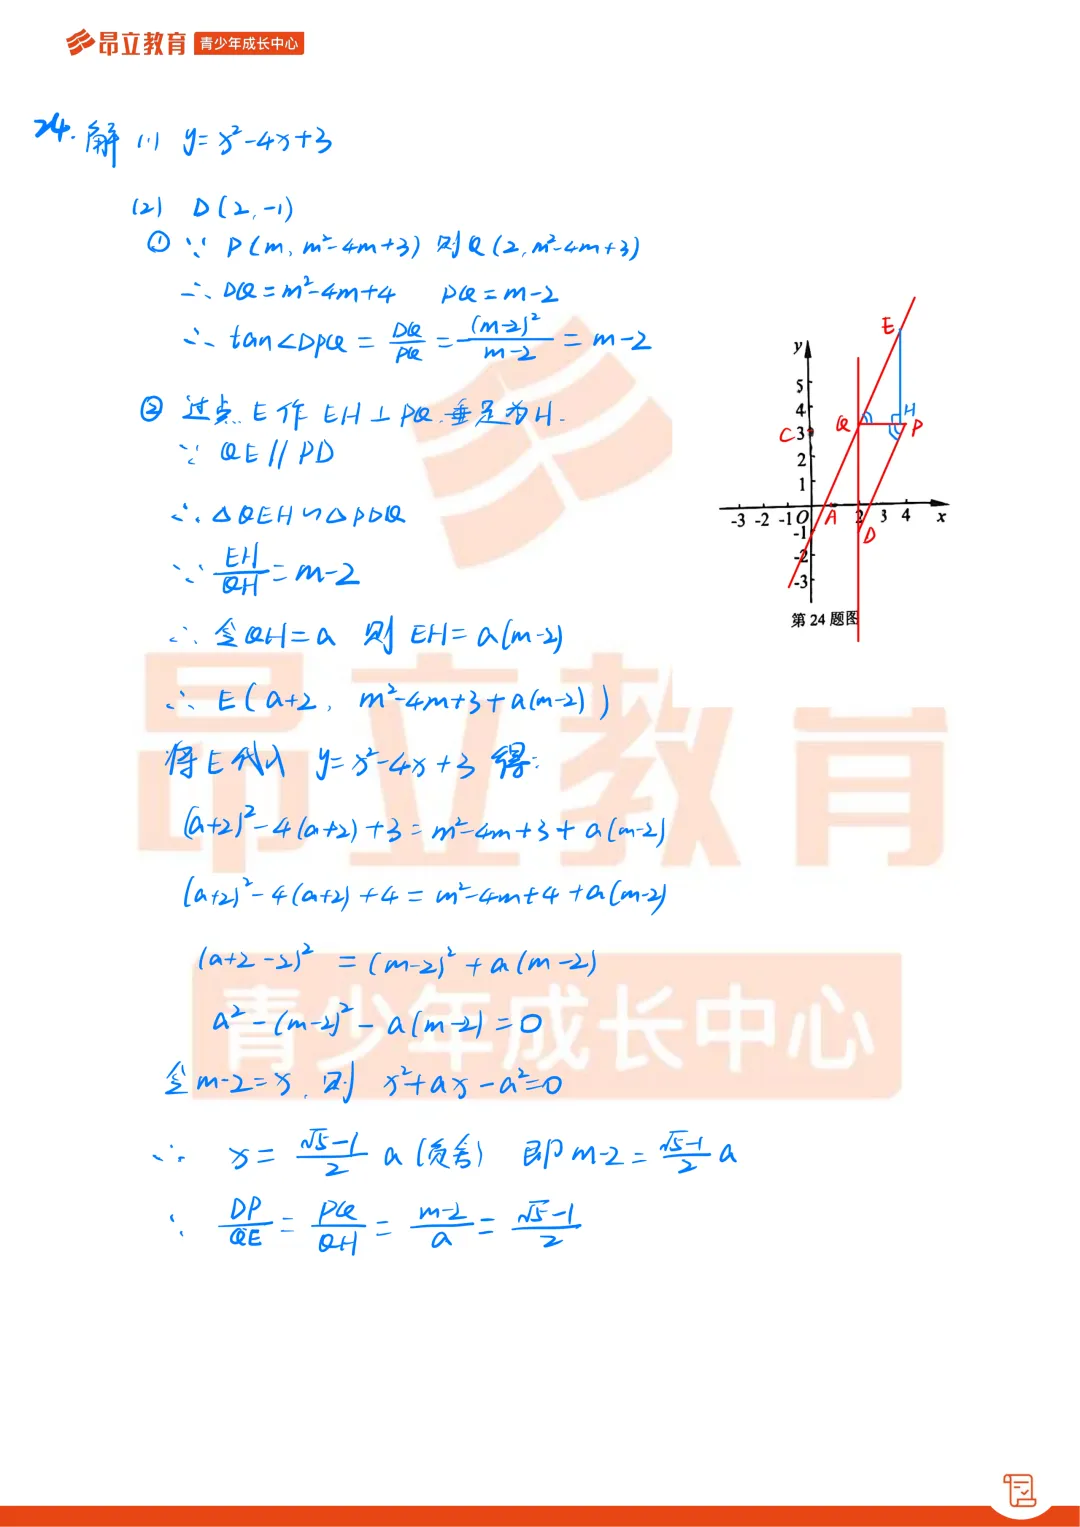 昂立教育 青少年成长中心
24. 解 (1) y=x²-4x+3
(2) D(2,-1)
① ∵ P(m, m²-4m+3) 则Q(2, m²-4m+3)
∴ DQ=m²-4m+4 PQ=m-2
∴ tan∠DPQ = DQ/PQ = (m-2)²/(m-2) = m-2
② 过点E作EH⊥PQ.垂足为H.
∵ QE//PD
∴ △QEH∽△PDQ
∵ EH/QH = m-2
∴ 令QH=a 则 EH=a(m-2)
∴ E(a+2, m²-4m+3+a(m-2))
将E代入 y=x²-4x+3 得:
(a+2)²-4(a+2)+3=m²-4m+3+a(m-2)
(a+2)²-4(a+2)+4=m²-4m+4+a(m-2)
(a+2-2)² =(m-2)²+a(m-2)
a²-(m-2)²-a(m-2)=0
令m-2=x, 则 x²+ax-a²=0
∴ x= (√5-1)/2 a (负舍) 即m-2= (√5-1)/2 a
∵ DP/QE = PQ/QH = (m-2)/a = (√5-1)/2
y
E
5
4
H
C
3
Q
P
2
1
-3 -2 -1 O A 2 3 4 x
-1
D
-2
-3
第24题图
昂立教育
青少年成长中心